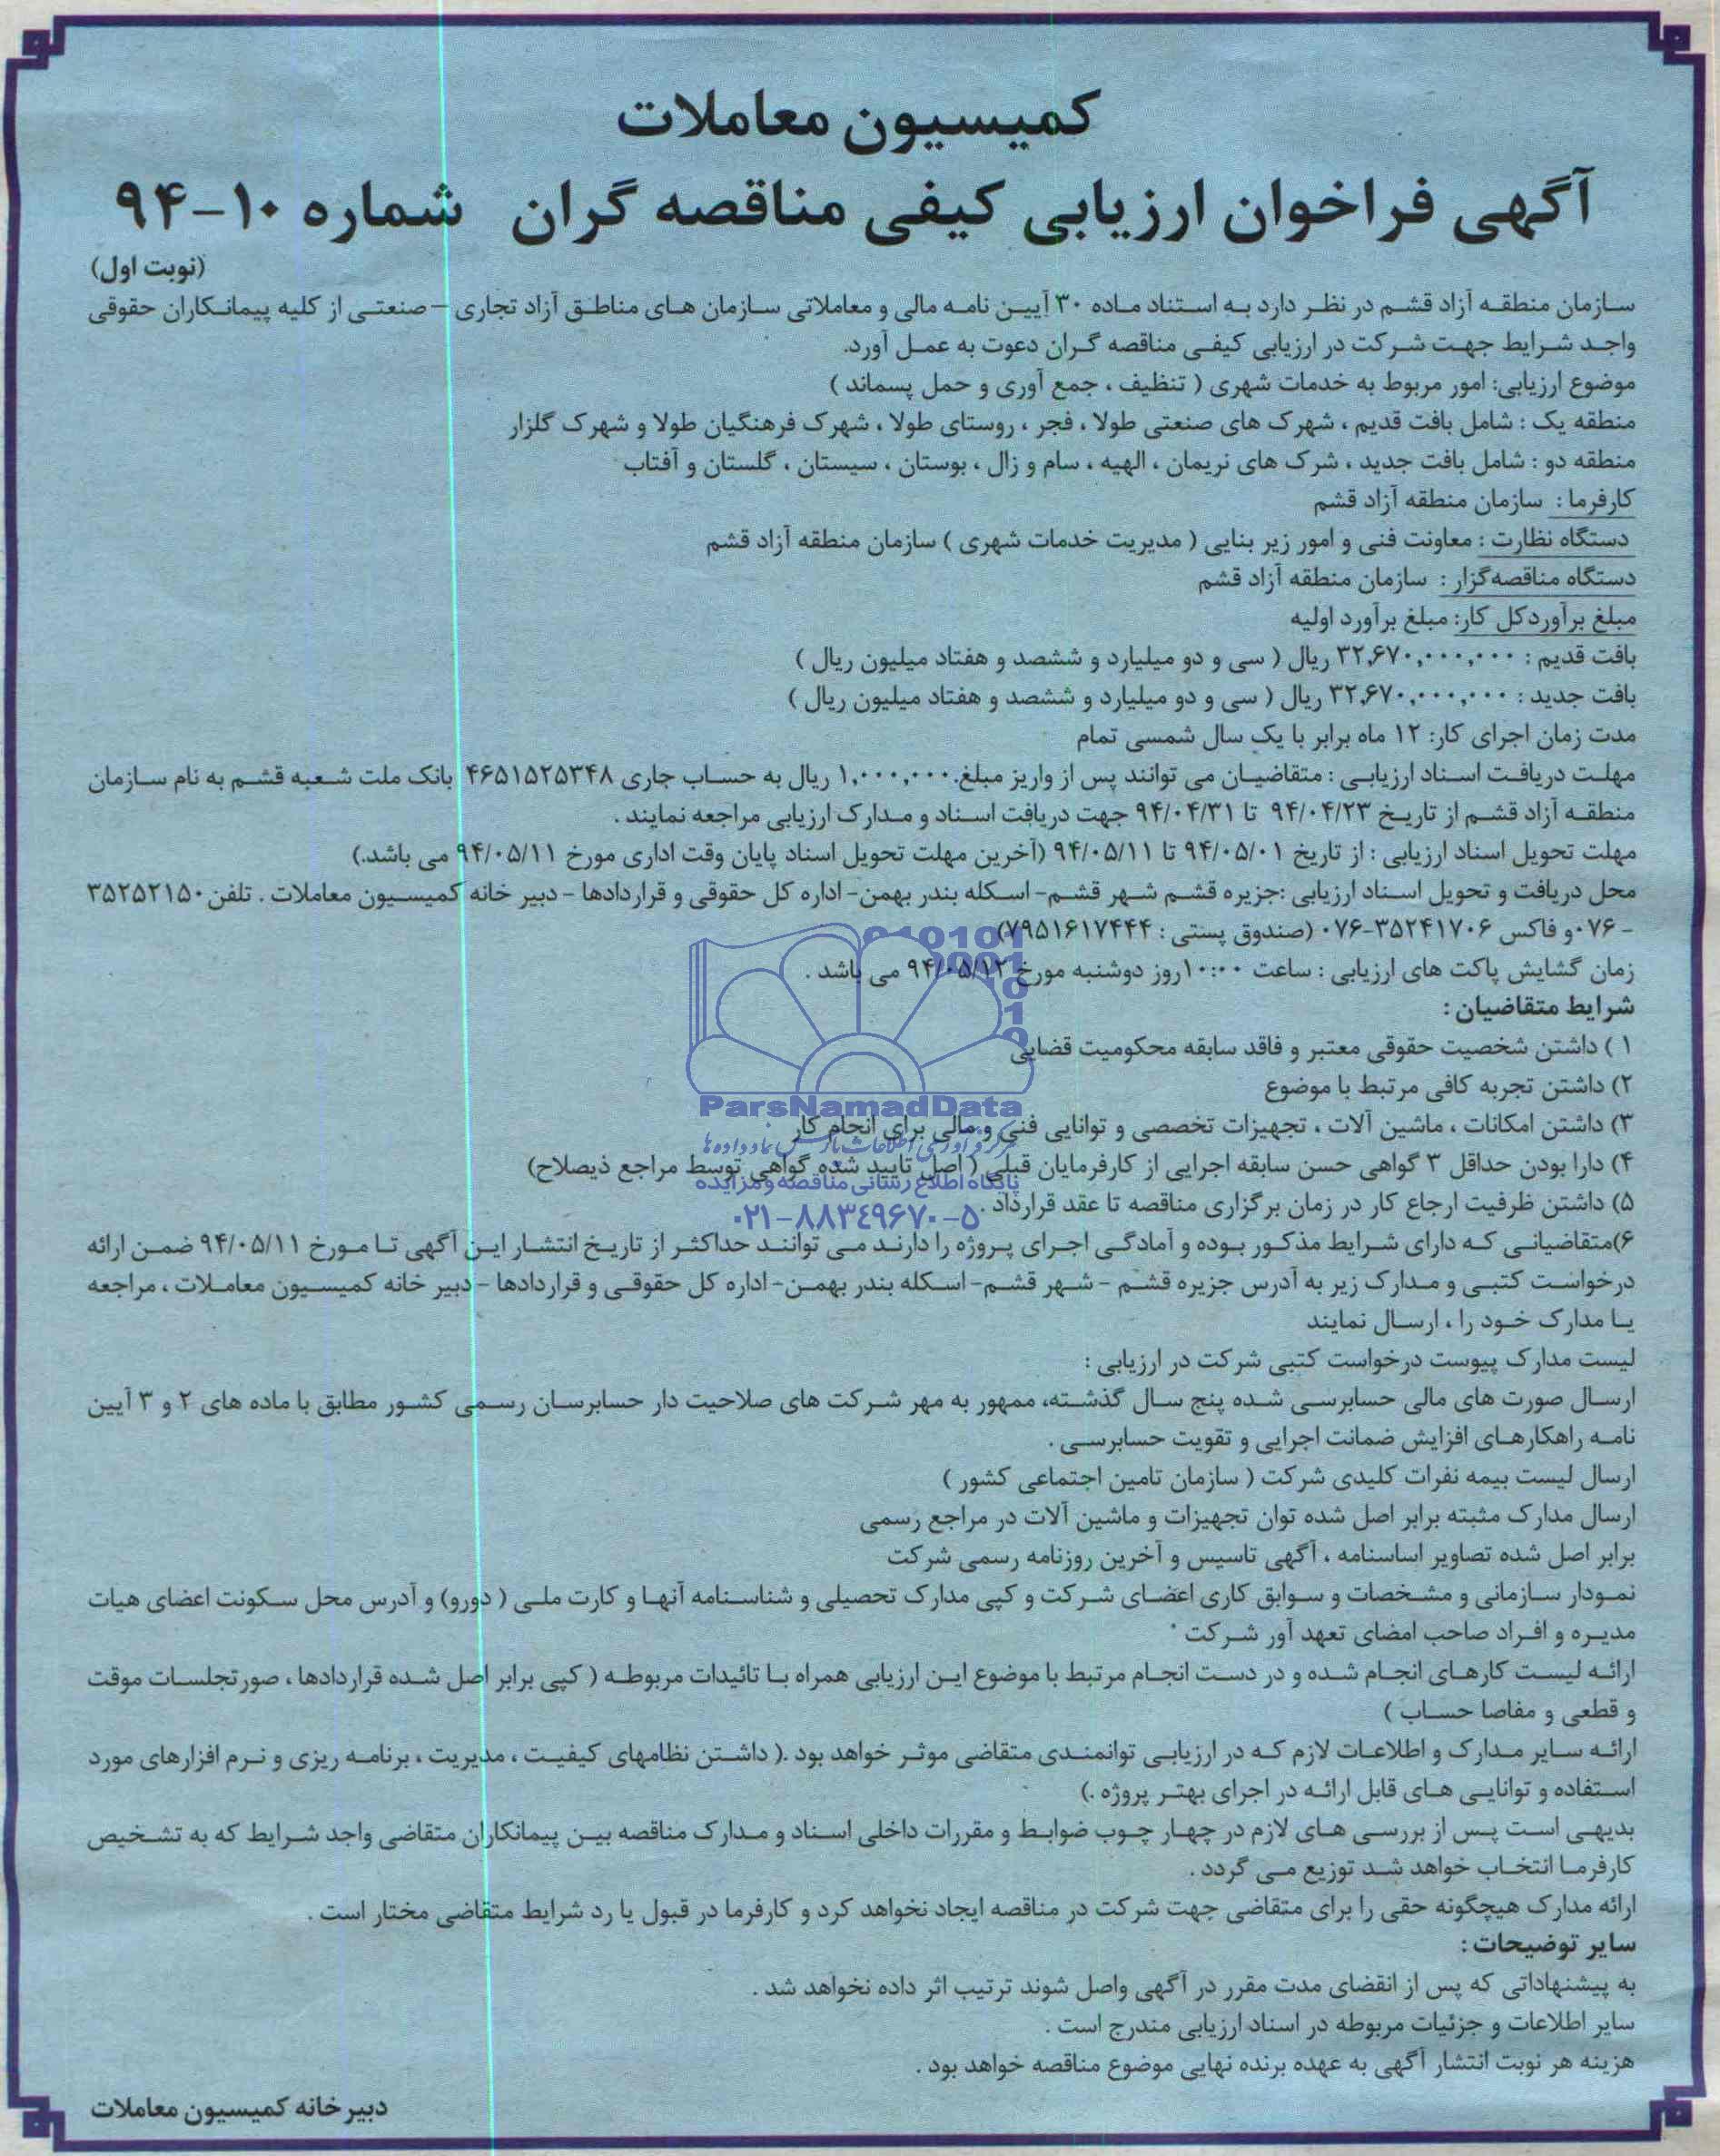 کمیسیون معاملات
آگهی فراخوان ارزیابی کیفی مناقصه گران شماره ۱۰-۹۴
(نوبت اول)
سازمان منطقه آزاد قشم در نظر دارد به استناد ماده ۳۰ آیین نامه مالی و معاملاتی سازمان های مناطق آزاد تجاری – صنعتی از کلیه پیمانکاران حقوقی
واجد شرایط جهت شرکت در ارزیابی کیفی مناقصه گران دعوت به عمل آورد.
موضوع ارزیابی: امور مربوط به خدمات شهری ( تنظیف ، جمع آوری و حمل پسماند )
منطقه یک : شامل بافت قدیم ، شهرک های صنعتی طولا ، فجر ، روستای طولا ، شهرک فرهنگیان طولا و شهرک گلزار
منطقه دو : شامل بافت جدید ، شرک های نریمان ، الهیه ، سام و زال ، بوستان ، سیستان ، گلستان و آفتاب
کارفرما : سازمان منطقه آزاد قشم
دستگاه نظارت : معاونت فنی و امور زیر بنایی ( مدیریت خدمات شهری ) سازمان منطقه آزاد قشم
دستگاه مناقصه‌گزار : سازمان منطقه آزاد قشم
مبلغ برآوردکل کار: مبلغ برآورد اولیه
بافت قدیم : ۳۲,۶۷۰,۰۰۰,۰۰۰ ریال ( سی و دو میلیارد و ششصد و هفتاد میلیون ریال )
بافت جدید : ۳۲,۶۷۰,۰۰۰,۰۰۰ ریال ( سی و دو میلیارد و ششصد و هفتاد میلیون ریال )
مدت زمان اجرای کار: ۱۲ ماه برابر با یک سال شمسی تمام
مهلت دریافت اسناد ارزیابی : متقاضیان می توانند پس از واریز مبلغ ۱,۰۰۰,۰۰۰ ریال به حساب جاری ۴۶۵۱۵۲۵۳۴۸ بانک ملت شعبه قشم به نام سازمان
منطقه آزاد قشم از تاریخ ۹۴/۰۴/۲۳ تا ۹۴/۰۴/۳۱ جهت دریافت اسناد و مدارک ارزیابی مراجعه نمایند .
مهلت تحویل اسناد ارزیابی : از تاریخ ۹۴/۰۵/۰۱ تا ۹۴/۰۵/۱۱ (آخرین مهلت تحویل اسناد پایان وقت اداری مورخ ۹۴/۰۵/۱۱ می باشد.)
محل دریافت و تحویل اسناد ارزیابی :جزیره قشم شهر قشم- اسکله بندر بهمن- اداره کل حقوقی و قراردادها – دبیر خانه کمیسیون معاملات . تلفن ۳۵۲۵۲۱۵۰
- ۰۷۶و فاکس ۳۵۲۴۱۷۰۶-۰۷۶ (صندوق پستی : ۷۹۵۱۶۱۷۴۴۴)
زمان گشایش پاکت های ارزیابی : ساعت ۱۰:۰۰روز دوشنبه مورخ ۹۴/۰۵/۱۲ می باشد .
شرایط متقاضیان :
۱ ) داشتن شخصیت حقوقی معتبر و فاقد سابقه محکومیت قضایی
۲) داشتن تجربه کافی مرتبط با موضوع
ParsNamadData
۳) داشتن امکانات ، ماشین آلات ، تجهیزات تخصصی و توانایی فنی و مالی برای انجام کار
۴) دارا بودن حداقل ۳ گواهی حسن سابقه اجرایی از کارفرمایان قبلی ( اصل تایید شده گواهی توسط مراجع ذیصلاح)
پایگاه اطلاع رسانی مناقصه و مزایده
۵) داشتن ظرفیت ارجاع کار در زمان برگزاری مناقصه تا عقد قرارداد .
۰۲۱-۸۸۳۴۹۶۷۰-۵
۶)متقاضیانی که دارای شرایط مذکور بوده و آمادگی اجرای پروژه را دارند می توانند حداکثر از تاریخ انتشار این آگهی تا مورخ ۹۴/۰۵/۱۱ ضمن ارائه
درخواست کتبی و مدارک زیر به آدرس جزیره قشم – شهر قشم- اسکله بندر بهمن- اداره کل حقوقی و قراردادها – دبیر خانه کمیسیون معاملات ، مراجعه
یا مدارک خود را ، ارسال نمایند
لیست مدارک پیوست درخواست کتبی شرکت در ارزیابی :
ارسال صورت های مالی حسابرسی شده پنج سال گذشته، ممهور به مهر شرکت های صلاحیت دار حسابرسان رسمی کشور مطابق با ماده های ۲ و ۳ آیین
نامه راهکارهای افزایش ضمانت اجرایی و تقویت حسابرسی .
ارسال لیست بیمه نفرات کلیدی شرکت ( سازمان تامین اجتماعی کشور )
ارسال مدارک مثبته برابر اصل شده توان تجهیزات و ماشین آلات در مراجع رسمی
برابر اصل شده تصاویر اساسنامه ، آگهی تاسیس و آخرین روزنامه رسمی شرکت
نمودار سازمانی و مشخصات و سوابق کاری اعضای شرکت و کپی مدارک تحصیلی و شناسنامه آنها و کارت ملی ( دورو) و آدرس محل سکونت اعضای هیات
مدیره و افراد صاحب امضای تعهد آور شرکت
ارائه لیست کارهای انجام شده و در دست انجام مرتبط با موضوع این ارزیابی همراه با تائیدات مربوطه ( کپی برابر اصل شده قراردادها ، صورتجلسات موقت
و قطعی و مفاصا حساب )
ارائه سایر مدارک و اطلاعات لازم که در ارزیابی توانمندی متقاضی موثر خواهد بود .( داشتن نظامهای کیفیت ، مدیریت ، برنامه ریزی و نرم افزارهای مورد
استفاده و توانایی های قابل ارائه در اجرای بهتر پروژه .)
بدیهی است پس از بررسی های لازم در چهار چوب ضوابط و مقررات داخلی اسناد و مدارک مناقصه بین پیمانکاران متقاضی واجد شرایط که به تشخیص
کارفرما انتخاب خواهد شد توزیع می گردد .
ارائه مدارک هیچگونه حقی را برای متقاضی جهت شرکت در مناقصه ایجاد نخواهد کرد و کارفرما در قبول یا رد شرایط متقاضی مختار است .
سایر توضیحات :
به پیشنهاداتی که پس از انقضای مدت مقرر در آگهی واصل شوند ترتیب اثر داده نخواهد شد .
سایر اطلاعات و جزئیات مربوطه در اسناد ارزیابی مندرج است .
هزینه هر نوبت انتشار آگهی به عهده برنده نهایی موضوع مناقصه خواهد بود .
دبیرخانه کمیسیون معاملات